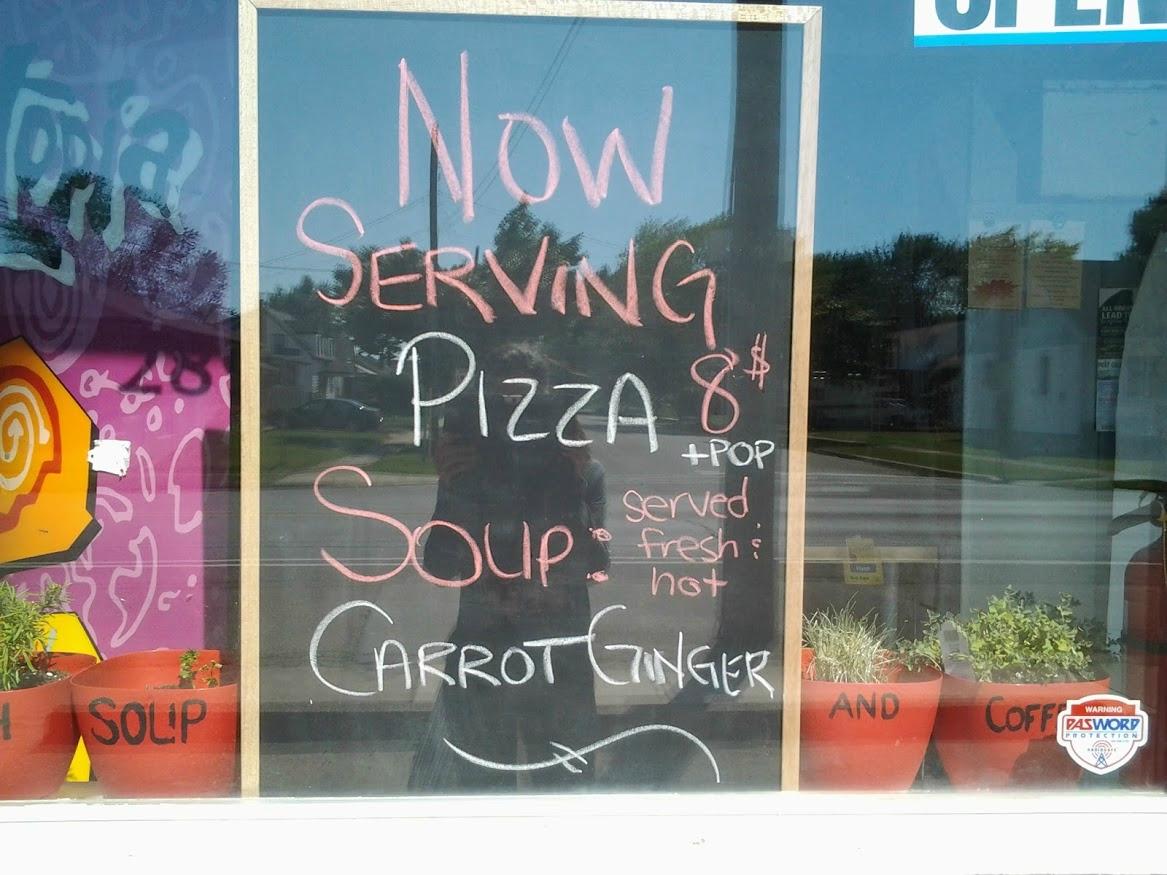 OPEN
NOW
SERVING
PIZZA 8$
+POP
SOUP: served
fresh:
hot
CARROT GINGER
SOUP
AND
COFF
WARNING
PASWORD
PROTECTION